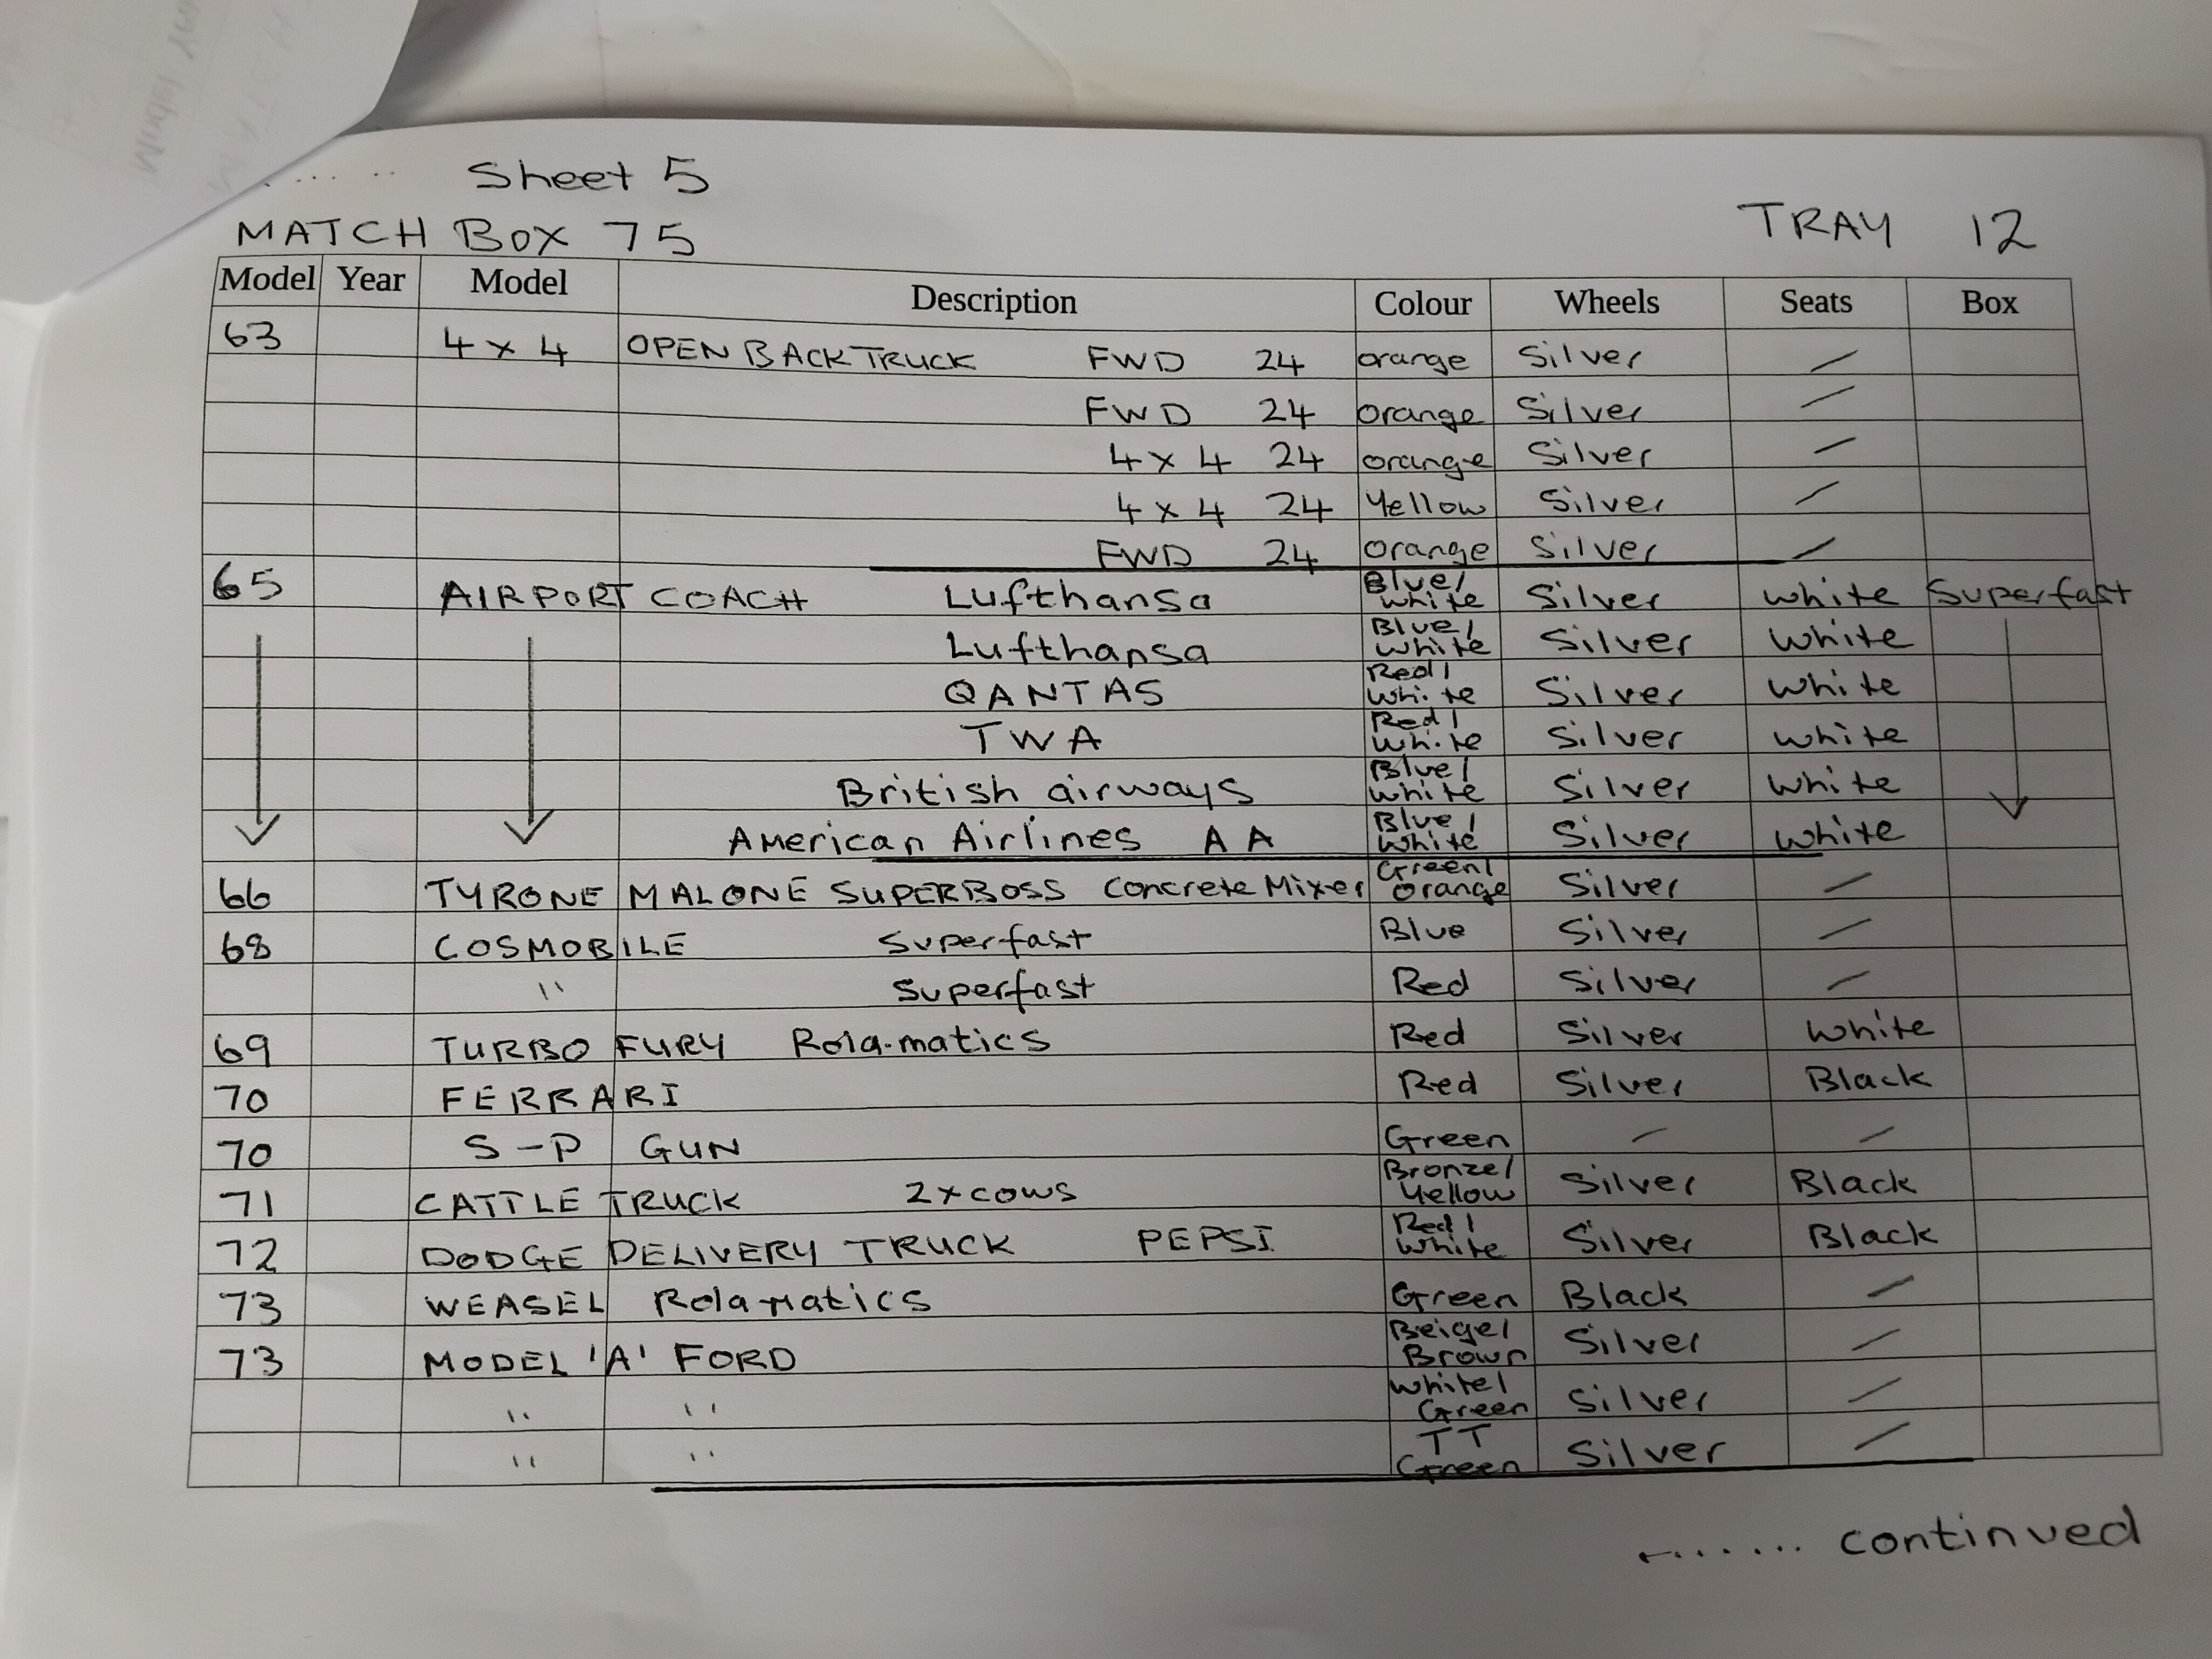 Sheet 5
MATCH BOX 75 TRAY 12
Model Year Model Description Colour Wheels Seats Box
63 4 x 4 OPEN BACK TRUCK FWD 24 orange Silver /
FWD 24 orange Silver /
4 x 4 24 orange Silver /
4 x 4 24 Yellow Silver /
FWD 24 orange Silver /
65 AIRPORT COACH Lufthansa Blue/ white Silver white Superfast
Lufthansa Blue/ white Silver white
QANTAS Red/ white Silver white
TWA Red/ white Silver white
British airways Blue/ white Silver white
American Airlines AA Blue/ white Silver white
66 TYRONE MALONE SUPERBOSS Concrete Mixer Green/ orange Silver /
68 COSMOBILE Superfast Blue Silver /
" Superfast Red Silver /
69 TURBO FURY Rola-matics Red Silver white
70 FERRARI Red Silver Black
70 S-P GUN Green / /
71 CATTLE TRUCK 2xcows Bronze/ Yellow Silver Black
72 DODGE DELIVERY TRUCK PEPSI Red/ white Silver Black
73 WEASEL Rolamatics Green Black /
73 MODEL 'A' FORD Beige/ Brown Silver /
" " white/ Green Silver /
" " TT Green Silver /
←...... continued